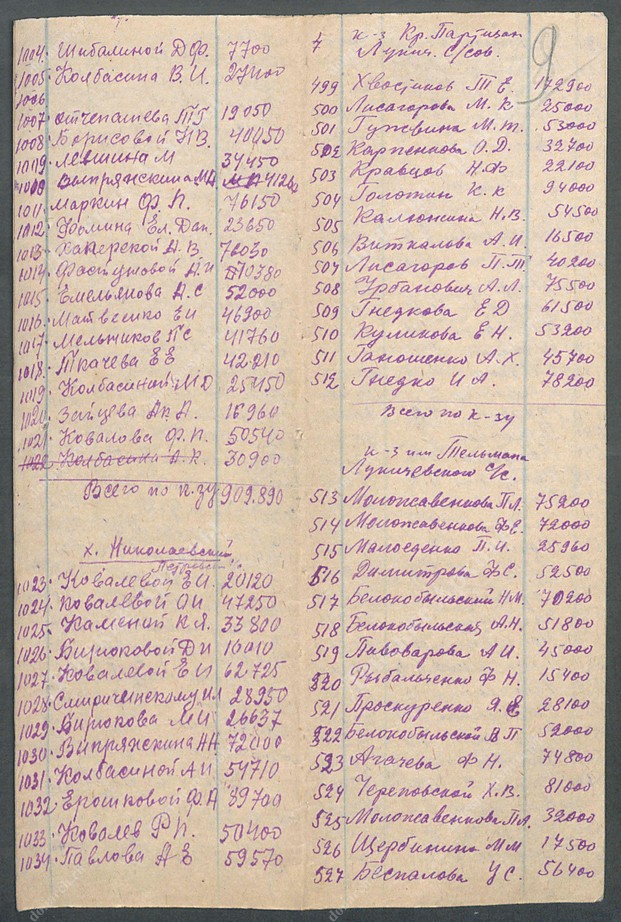 1004. Шибалиной Д.Ф. 7700
1005. Колбасина В.И. 27400
1006
1007. Отчепашева Т Г 19050
1008. Борисовой Н.В. 40450
1009. Левшина М 34450
1009 Выпряжскина МД 41260
1011. Маркин Ф.П. 76150
1012. Фомина Ел. Дан. 23650
1013. Хаперской А.В 76030
1014. Фастуновой А И 10380
1015. Емельянова А.С 52000
1016. Матвеенко Е И 46900
1017. Мельников П С 41760
1018. Ткачева Е Е 42210
1019. Колбасиной М О 25450
1020. Зайцева Ак.А. 16960
1021. Ковалова Ф.П. 50540
1022. Колбасина А.К. 30900
Всего по к.зу 909.890
х. Николаевский
1023. Ковалевой Е.И. 20120
1024. Ковалевой О И 47250
1025. Каменой К.Я. 33800
1026. Бирюковой Д И 16010
1027. Ковалевой Е И 62725
1028. Смиричинскому И Л 28950
1029. Бирюкова М И 26637
1030. Выпряжскина Н Н 72000
1031. Колбасиной А И. 54710
1032. Ерошковой Ф А 89700
1033. Ковалев Р П. 50400
1034. Павлова А Е 59570
к-з Кр. Партизан
7 Лукич. С/сов.
9
499 Хвостиков Т Е. 172900
500 Лисагорова М. К 25000
501 Гужвина М.Т. 53000
502 Карпенкова О.Д. 32700
503 Кравцов Н.Ф 22100
504 Голотин К.К 94000
505 Калюжина Н.В. 54500
506 Виткалова А.И. 16500
507 Лисагоров П.Т. 40200
508 Урбанович А.Л. 75500
509 Гнедкова Е Д 61500
510 Куликова Е Н. 53200
511 Ганошенко А.Х. 45700
512 Гнедко И А. 78200
Всего по к-зу
к-з им Тельмана
Лукичевского С/с.
513 Моложавенкова П.Л. 75200
514 Моложавенкова Ф Е. 72000
515 Малоеденко П.И. 25960
516 Димитрова Ф С. 52500
517 Белокобыльский Н М. 70200
518 Белокобыльская А.Н. 51800
519 Пивоварова А И. 45000
520 Рыбальченко Ф Н. 15400
521 Проскуренко Я.Е 28100
522 Белокобыльской В П 52000
523 Агачева Ф Н. 74800
524 Череповской Х.В. 81000
525 Моложавенкова П.Л. 32000
526 Щербинина М М 17500
527 Беспалова У С. 56400